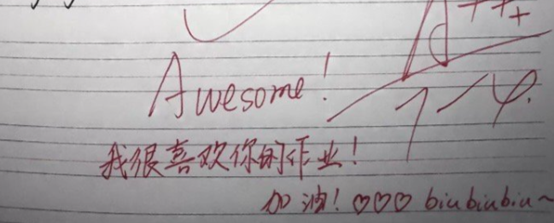 A+++
7-4.
Awesome!
我很喜欢你的作业!
加油!♡♡♡ biubiubiu~